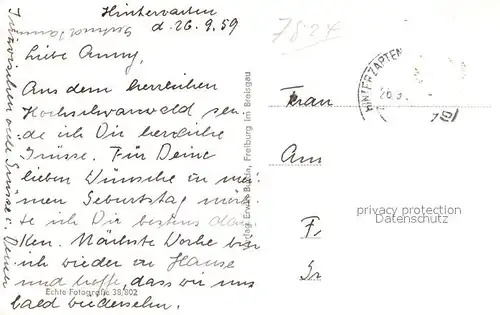 Hinterzarten
d. 26.9.59
Liebe Anny,
Aus dem herrlichen
Hochschwarzwald sen-
de ich Dir herzliche
Grüsse. Für Deine
lieben Wünsche zu mei-
nem Geburtstag möch-
te ich Dir bestens dan-
ken. Nächste Woche bin
ich wieder zu Hause
und hoffe, dass wir uns
bald wiedersehn.
Inzwischen alle Grüsse v. Deiner
Echte Fotografie 38/802
Verlag Erwin Burda, Freiburg im Breisgau
7824
HINTERZARTEN
Frau
Am
F
privacy protection
Datenschutz